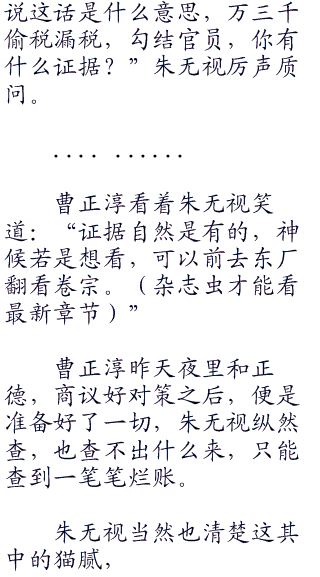 说这话是什么意思，万三千
偷税漏税，勾结官员，你有
什么证据？”朱无视厉声质
问。
.... ......
曹正淳看着朱无视笑
道：“证据自然是有的，神
候若是想看，可以前去东厂
翻看卷宗。（杂志虫才能看
最新章节）”
曹正淳昨天夜里和正
德，商议好对策之后，便是
准备好了一切，朱无视纵然
查，也查不出什么来，只能
查到一笔笔烂账。
朱无视当然也清楚这其
中的猫腻，